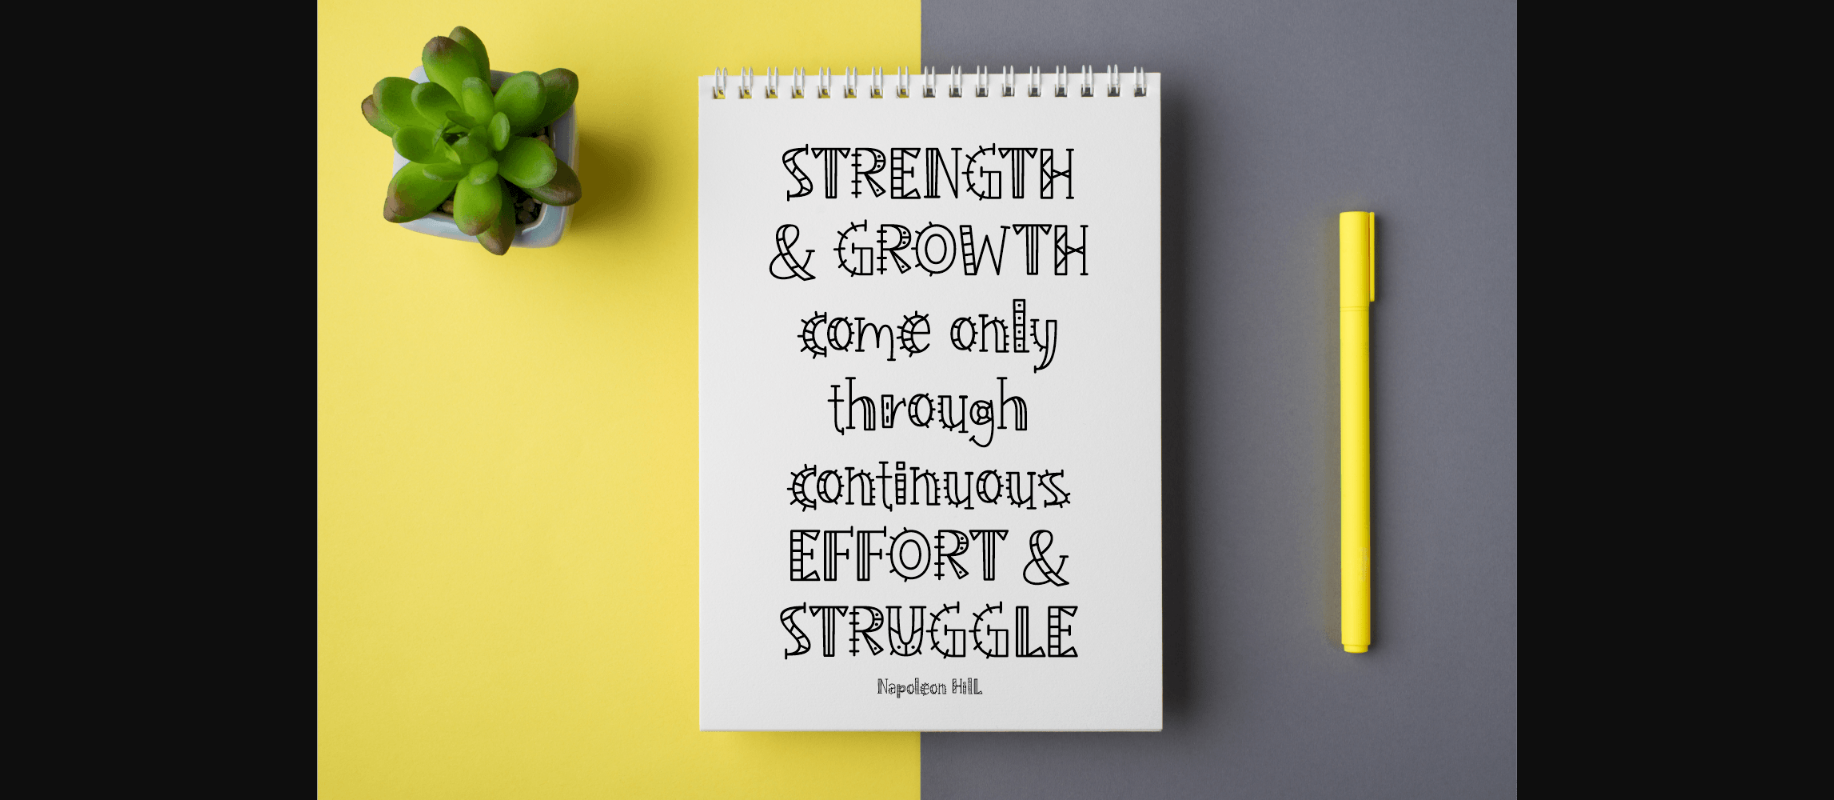 STRENGTH
& GROWTH
come only
through
continuous
EFFORT &
STRUGGLE
Napoleon Hill